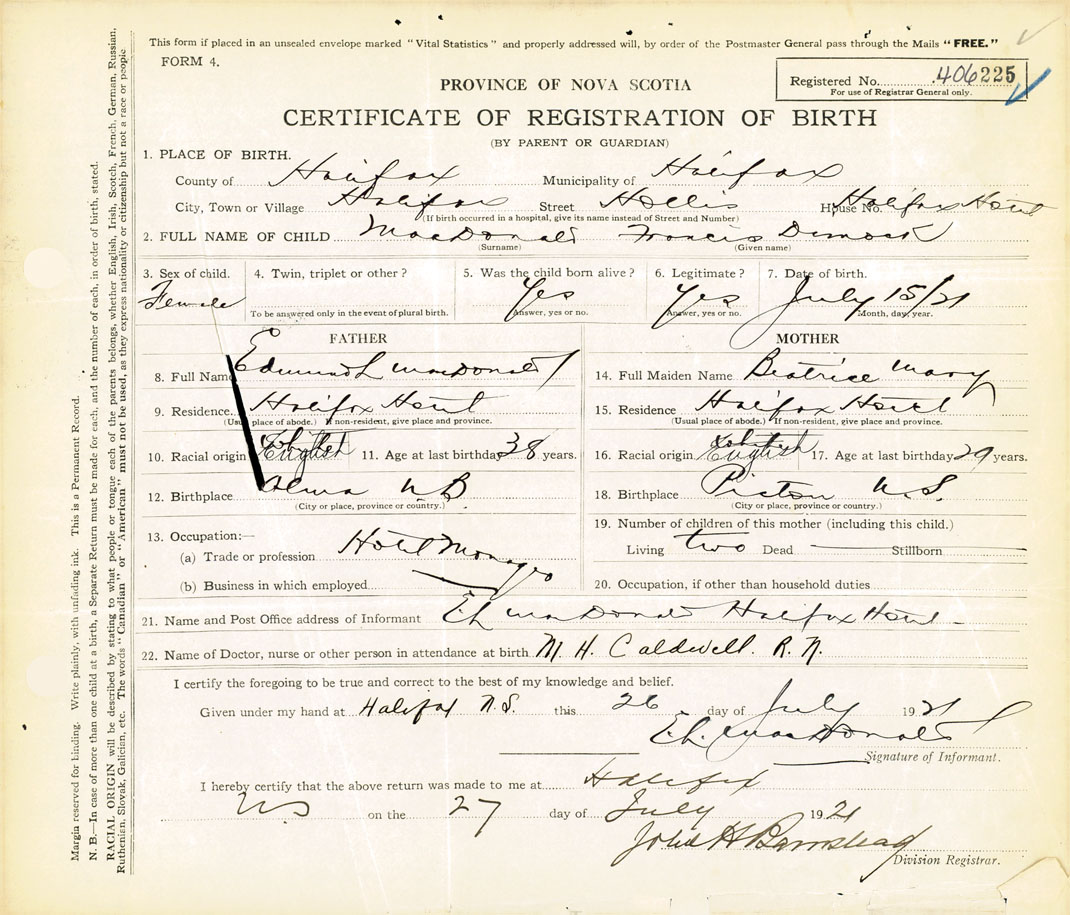 This form if placed in an unsealed envelope marked "Vital Statistics" and properly addressed will, by order of the Postmaster General pass through the Mails "FREE."
FORM 4.
Registered No. 406225
For use of Registrar General only.
PROVINCE OF NOVA SCOTIA
CERTIFICATE OF REGISTRATION OF BIRTH
(BY PARENT OR GUARDIAN)
1. PLACE OF BIRTH.
County of Halifax Municipality of Halifax
City, Town or Village Halifax Street Hollis House No. Halifax Hotel
(If birth occurred in a hospital, give its name instead of Street and Number)
2. FULL NAME OF CHILD MacDonald Francis Dimock
(Surname) (Given name)
3. Sex of child. 4. Twin, triplet or other? 5. Was the child born alive? 6. Legitimate? 7. Date of birth.
Female Yes Yes July 15/21
To be answered only in the event of plural birth. Answer, yes or no. Answer, yes or no. Month, day, year.
FATHER MOTHER
8. Full Name Edmund L MacDonald 14. Full Maiden Name Beatrice Mary
9. Residence Halifax Hotel 15. Residence Halifax Hotel
(Usual place of abode.) If non-resident, give place and province. (Usual place of abode.) If non-resident, give place and province.
10. Racial origin English 11. Age at last birthday 38 years. 16. Racial origin English 17. Age at last birthday 29 years.
12. Birthplace Alma N.B 18. Birthplace Pictou N.S.
(City or place, province or country.) (City or place, province or country.)
13. Occupation:— 19. Number of children of this mother (including this child.)
(a) Trade or profession Hotel Manager Living two Dead Stillborn
(b) Business in which employed 20. Occupation, if other than household duties
21. Name and Post Office address of Informant EL MacDonald Halifax Hotel
22. Name of Doctor, nurse or other person in attendance at birth M. H. Caldwell. R. N.
I certify the foregoing to be true and correct to the best of my knowledge and belief.
Given under my hand at Halifax N.S. this 26 day of July 1921
E.L. MacDonald
Signature of Informant.
I hereby certify that the above return was made to me at Halifax
NS on the 27 day of July 1921
John H Barnstead
Division Registrar.
Margin reserved for binding. Write plainly, with unfading ink. This is a Permanent Record.
N. B.—In case of more than one child at a birth, a Separate Return must be made for each, and the number of each, in order of birth, stated.
RACIAL ORIGIN will be described by stating to what people or tongue each of the parents belongs, whether English, Irish, Scotch, French, German, Russian,
Ruthenian, Slovak, Galician, etc. The words "Canadian" or "American" must not be used, as they express nationality or citizenship but not a race or people